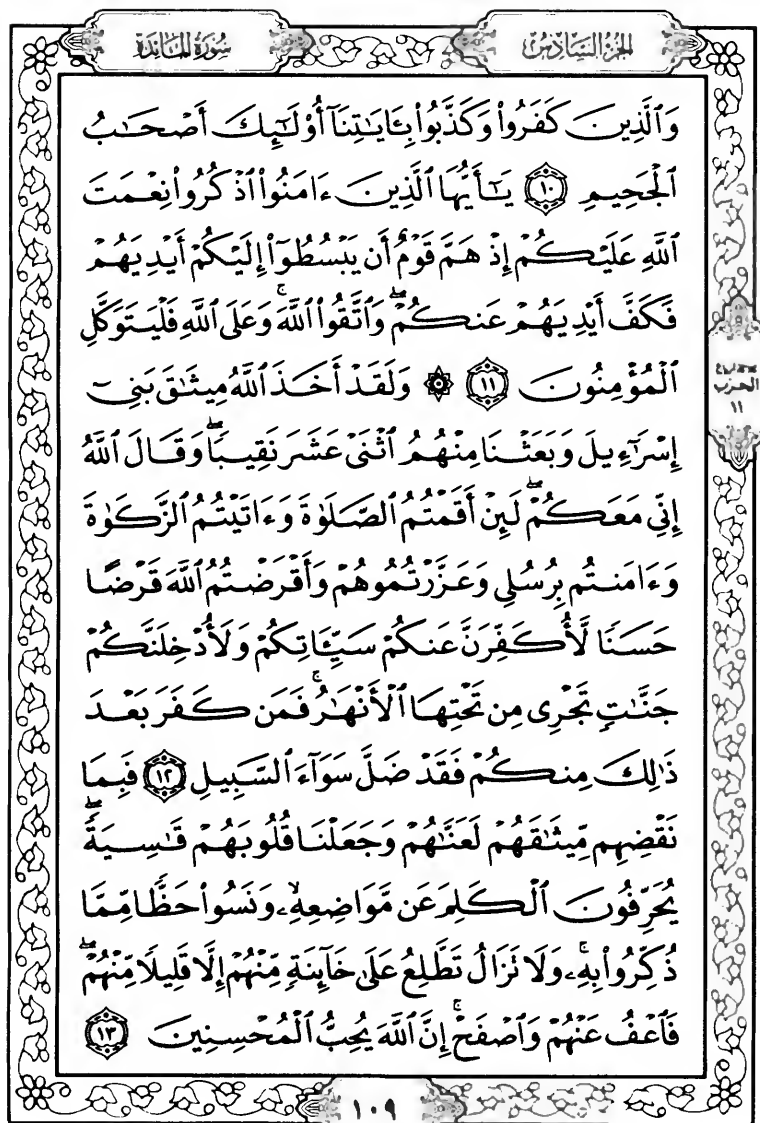 سُورَةُ المَائِدَةِ
الجُزْءُ السَّادِسُ
وَٱلَّذِينَ كَفَرُواْ وَكَذَّبُواْ بِـَٔايَٰتِنَآ أُوْلَٰٓئِكَ أَصْحَٰبُ
ٱلْجَحِيمِ ١٠ يَٰٓأَيُّهَا ٱلَّذِينَ ءَامَنُواْ ٱذْكُرُواْ نِعْمَتَ
ٱللَّهِ عَلَيْكُمْ إِذْ هَمَّ قَوْمٌ أَن يَبْسُطُوٓاْ إِلَيْكُمْ أَيْدِيَهُمْ
فَكَفَّ أَيْدِيَهُمْ عَنكُمْۖ وَٱتَّقُواْ ٱللَّهَۚ وَعَلَى ٱللَّهِ فَلْيَتَوَكَّلِ
ٱلْمُؤْمِنُونَ ١١ ۞ وَلَقَدْ أَخَذَ ٱللَّهُ مِيثَٰقَ بَنِىٓ
إِسْرَٰٓءِيلَ وَبَعَثْنَا مِنْهُمُ ٱثْنَىْ عَشَرَ نَقِيبًاۖ وَقَالَ ٱللَّهُ
إِنِّى مَعَكُمْۖ لَئِنْ أَقَمْتُمُ ٱلصَّلَوٰةَ وَءَاتَيْتُمُ ٱلزَّكَوٰةَ
وَءَامَنتُم بِرُسُلِى وَعَزَّرْتُمُوهُمْ وَأَقْرَضْتُمُ ٱللَّهَ قَرْضًا
حَسَنًا لَّأُكَفِّرَنَّ عَنكُمْ سَيِّـَٔاتِكُمْ وَلَأُدْخِلَنَّكُمْ
جَنَّٰتٍ تَجْرِى مِن تَحْتِهَا ٱلْأَنْهَٰرُۚ فَمَن كَفَرَ بَعْدَ
ذَٰلِكَ مِنكُمْ فَقَدْ ضَلَّ سَوَآءَ ٱلسَّبِيلِ ١٢ فَبِمَا
نَقْضِهِم مِّيثَٰقَهُمْ لَعَنَّٰهُمْ وَجَعَلْنَا قُلُوبَهُمْ قَٰسِيَةًۖ
يُحَرِّفُونَ ٱلْكَلِمَ عَن مَّوَاضِعِهِۦۙ وَنَسُواْ حَظًّا مِّمَّا
ذُكِّرُواْ بِهِۦۚ وَلَا تَزَالُ تَطَّلِعُ عَلَىٰ خَآئِنَةٍ مِّنْهُمْ إِلَّا قَلِيلًا مِّنْهُمْۖ
فَٱعْفُ عَنْهُمْ وَٱصْفَحْۚ إِنَّ ٱللَّهَ يُحِبُّ ٱلْمُحْسِنِينَ ١٣
الحزب
١١
١٠٩